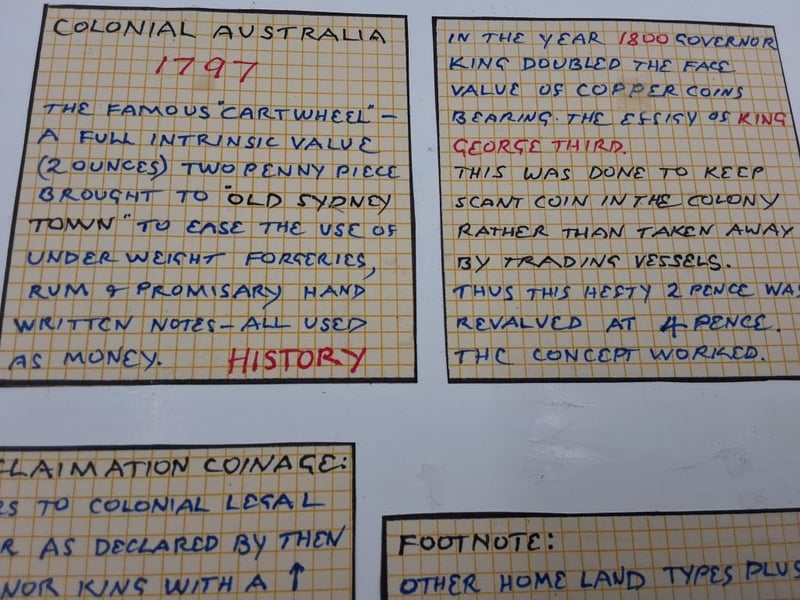 COLONIAL AUSTRALIA
1797
THE FAMOUS "CARTWHEEL" –
A FULL INTRINSIC VALUE
(2 OUNCES) TWO PENNY PIECE
BROUGHT TO "OLD SYDNEY
TOWN" TO EASE THE USE OF
UNDER WEIGHT FORGERIES,
RUM & PROMISARY HAND
WRITTEN NOTES – ALL USED
AS MONEY. HISTORY
IN THE YEAR 1800 GOVERNOR
KING DOUBLED THE FACE
VALUE OF COPPER COINS
BEARING. THE EFFIGY OF KING
GEORGE THIRD.
THIS WAS DONE TO KEEP
SCANT COIN IN THE COLONY
RATHER THAN TAKEN AWAY
BY TRADING VESSELS.
THUS THIS HEFTY 2 PENCE WAS
REVALVED AT 4 PENCE.
THE CONCEPT WORKED.
CLAIMATION COINAGE:
RS TO COLONIAL LEGAL
R AS DECLARED BY THEN
NOR KING WITH A ↑
FOOTNOTE:
OTHER HOME LAND TYPES PLUS